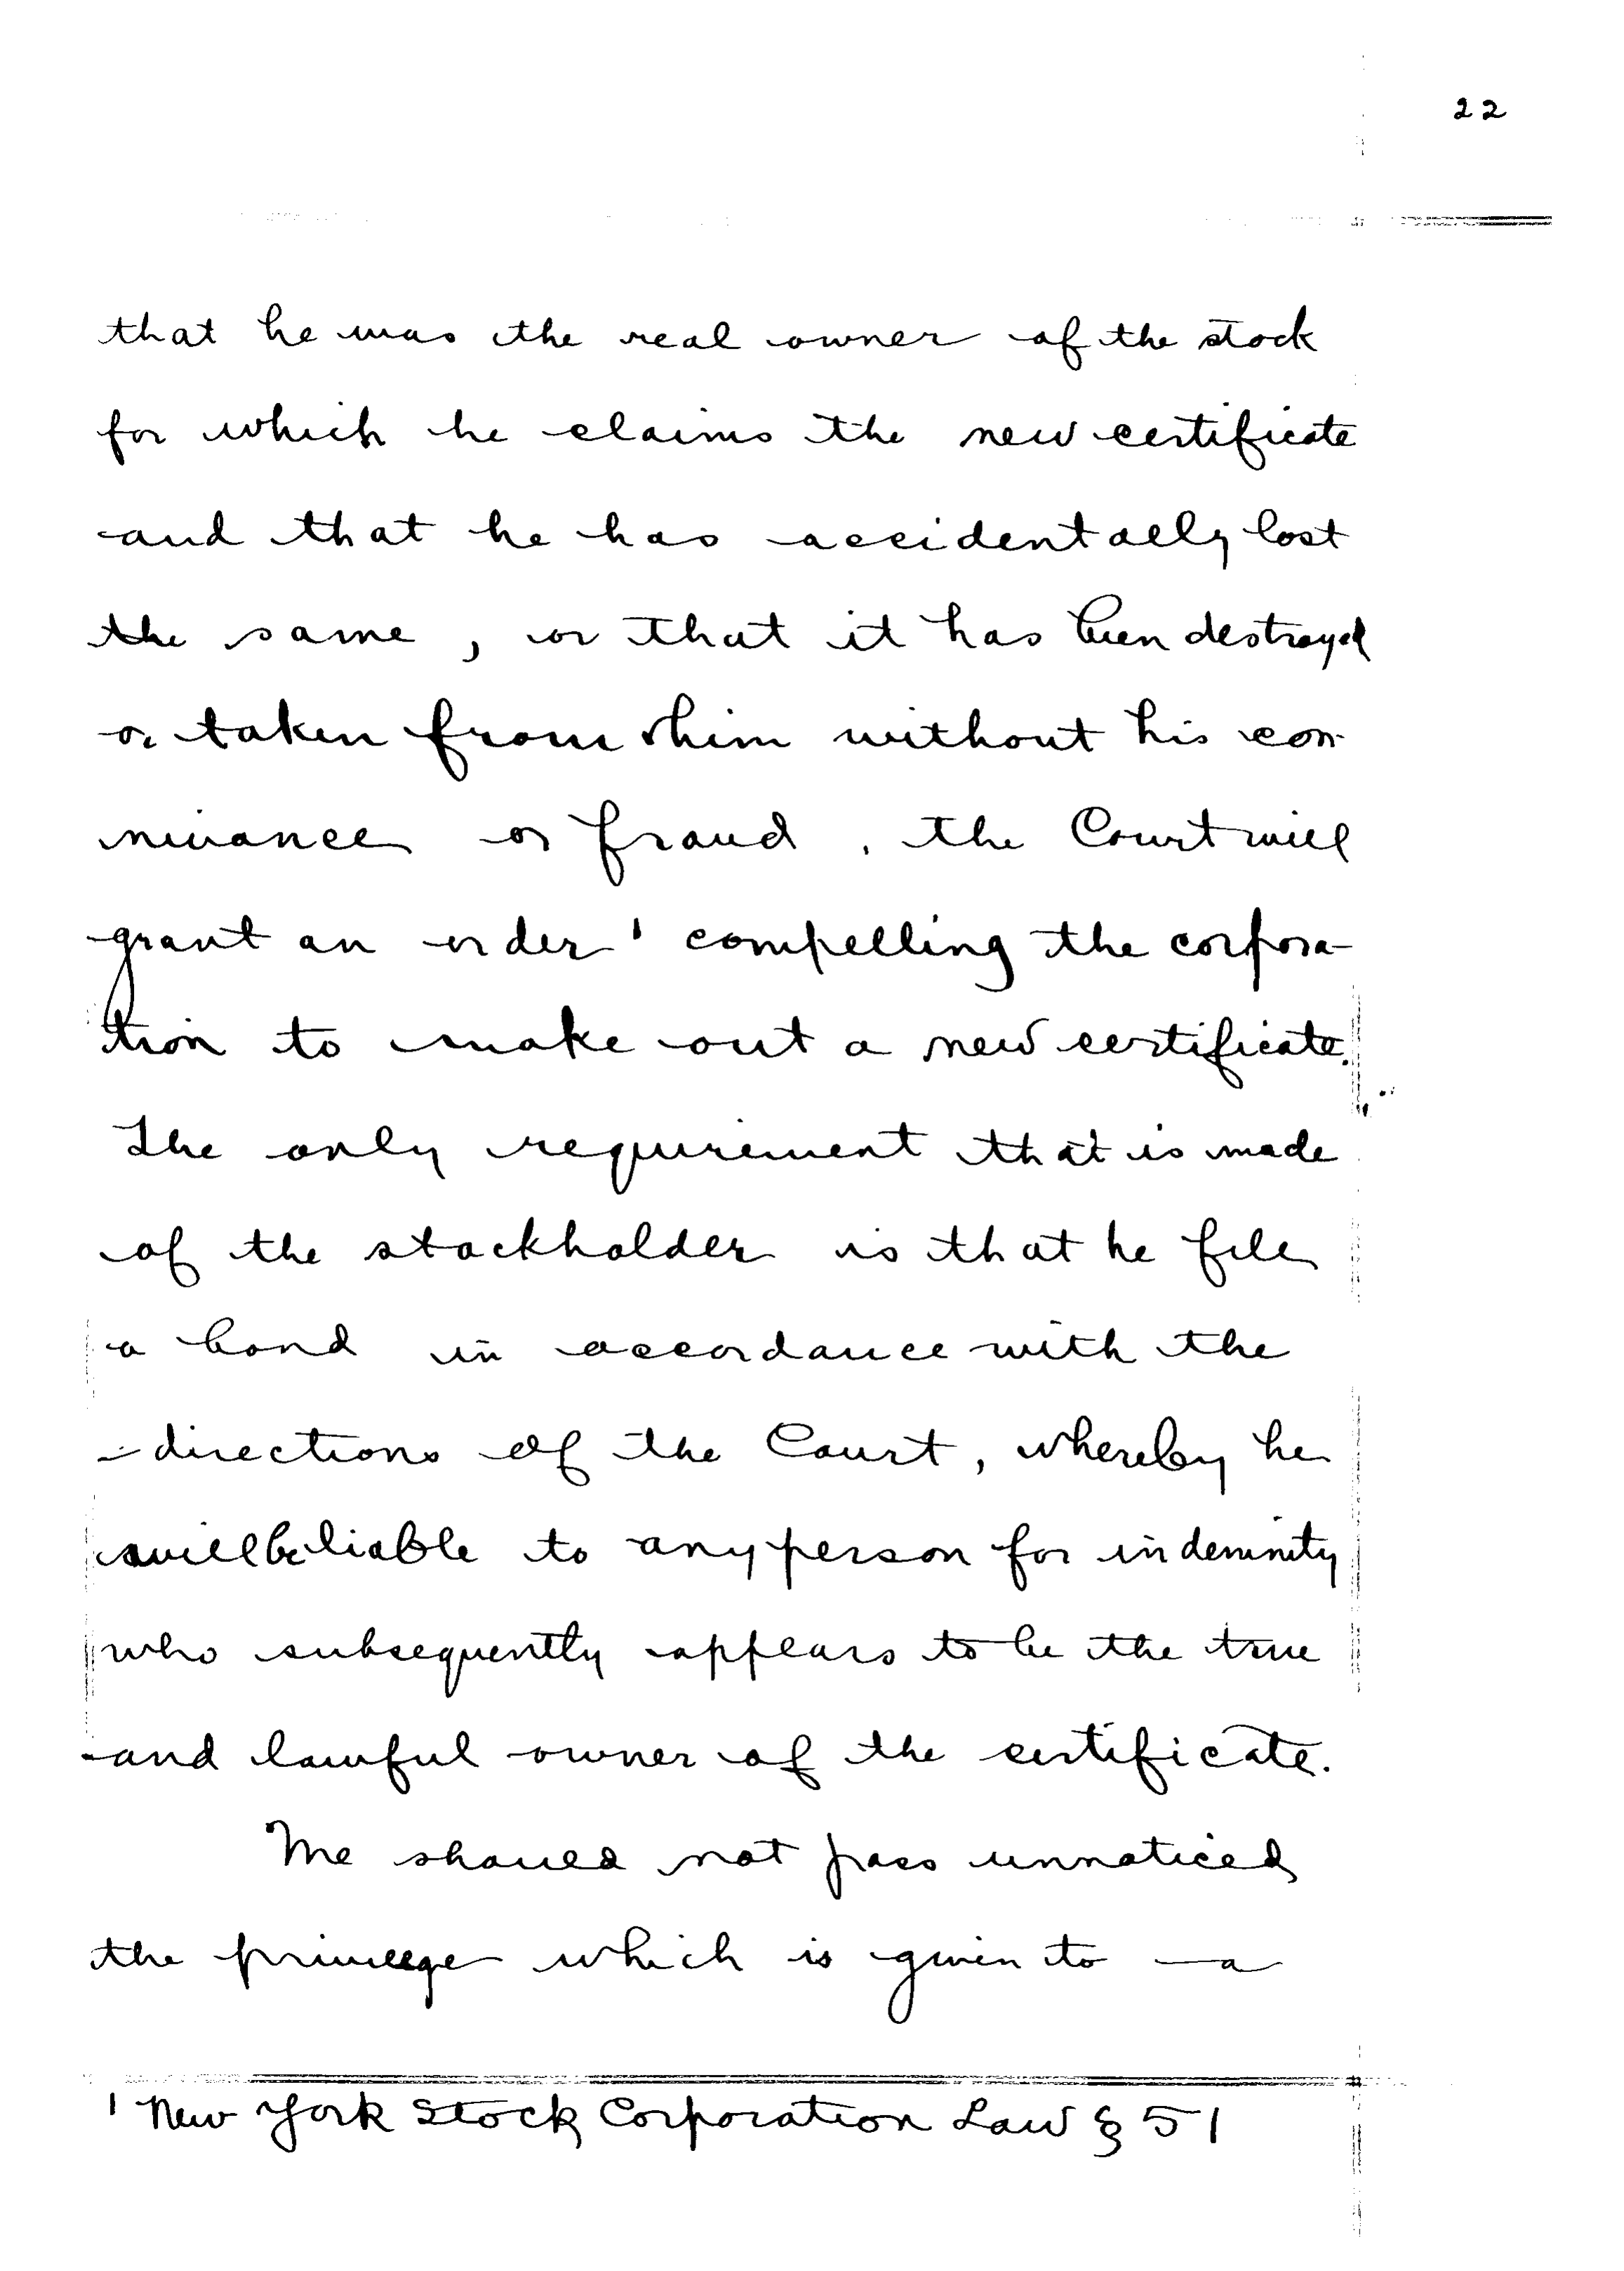 22
that he was the real owner of the stock
for which he claims the new certificate
and that he has accidentally lost
the same, or that it has been destroyed
or taken from him without his con-
nivance or fraud, the Court will
grant an order ¹ compelling the corpora-
tion to make out a new certificate.
The only requirement that is made
of the stockholder is that he file
a bond in accordance with the
directions of the Court, whereby he
will be liable to any person for indemnity
who subsequently appears to be the true
and lawful owner of the certificate.
We should not pass unnoticed
the privilege which is given to a
¹ New York Stock Corporation Law § 51